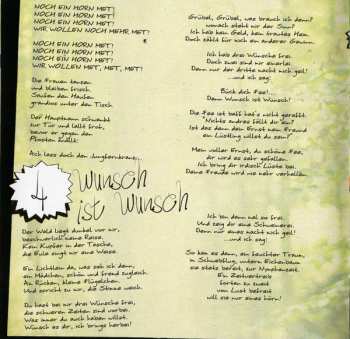 NOCH EIN HORN MET!
NOCH EIN HORN MET!
NOCH EIN HORN MET!
WIR WOLLEN NOCH MEHR MET!
NOCH EIN HORN MET!
NOCH EIN HORN MET!
NOCH EIN HORN MET!
WIR WOLLEN MET, MET, MET!
Die Frauen tanzen
und bleiben frisch.
Saufen den Haufen
grandios unter den Tisch.
Der Hauptmann schwankt
zur Tür und lallt froh,
bevor er gegen den
Pfosten knallt:
Ach lass doch den
4
Wunsch ist Wunsch
Der Wald liegt dunkel vor mir,
beschwerlich meine Reise.
Kein Kupfer in der Tasche,
die Eule singt mir eine Weise.
Ein Lichtlein da, was seh ich denn,
ein Mädchen, schön und fremd zugleich.
Am Rücken, kleine Flügelchen.
Und spricht zu mir, die Stimme weich.
Du hast bei mir drei Wünsche frei,
die schweren Zeiten sind vorbei.
Was immer du auch haben willst.
Wünsch es dir, ich bringe herbei!
Grübel, Grübel, was brauch ich denn?
wonach steht mir der Sinn?
Ich hab kein Geld, kein trautes Heim.
Doch zählt für mich ein anderer Gewinn.
Ich hab drei Wünsche frei.
Doch zwei sind mir einerlei.
Denn nur der dritte macht mich geil!
...und ich sag:
Bück dich Fee!
Denn Wunsch ist Wunsch!
Die Fee ist baff, hat's nicht gerafft.
"Nichts andres fällt dir ein?
Ist das denn dein Ernst mein Freund
ein Lüstling willst du sein?"
Mein voller Ernst, du schöne Fee,
dir wird es sehr gefallen.
Ich bring dir großes Glück bei.
Deine Freude wird nie mehr verhallen.
Ich bin dann mal so frei.
Und zeig dir eine Schweinerei.
Denn nur eines macht mich geil!
...und ich sag:
So kam es dann, ein feuchter Traum,
in Schummerung, unterm Eichenbaum
sie stets bereit, zur Nymphenzeit.
Ein Zeitvertreib
fortan zu zweit
von Lust befreit
will sie nur eines hörn!